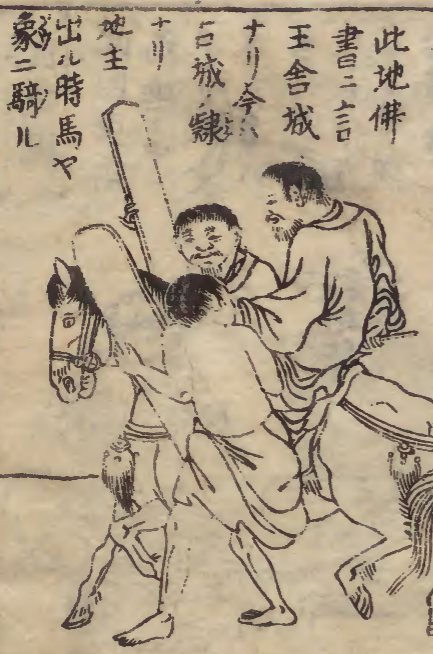 此地佛
書ニ言
王舎城
ナリ今ハ
占城ノ隷
ナリ
地主
出ル時馬ヤ
象ニ騎ル